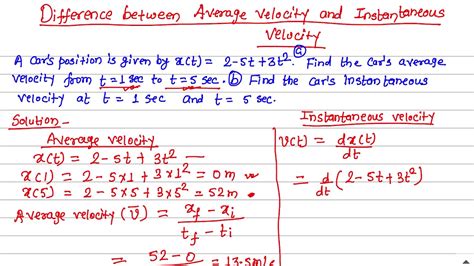 Difference between Average velocity and Instantaneous
velocity
A car's position is given by x(t) = 2-5t+3t². ⓐ Find the car's average
velocity from t=1sec to t=5 sec. ⓑ Find the car's instantaneous
velocity at t = 1 sec and t = 5 sec.
Solution -
Average velocity
x(t) = 2-5t + 3t²
x(1) = 2-5×1 +3×1² = 0 m
x(5) = 2-5×5 + 3×5² = 52 m
Average velocity (v̄) = xf - xi / tf - ti
= 52-0 = 13.5m/s
Instantaneous velocity
v(t) = dx(t)/dt
= d/dt (2-5t+3t²)